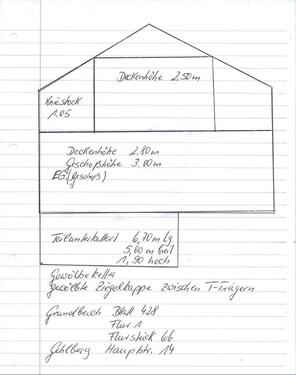 Deckenhöhe 2.50m
Kniestock
1.05
Deckenhöhe 2.80m
Geschoßhöhe 3.00m
EG (Geschoß)
Teilunterkellert 6,70m lg
5,00m breit
1,90 hoch
Gewölbekeller
Gewölbte Ziegelkappe zwischen T-Trägern
Grundbuch Blatt 428
Flur 1
Flurstück 66
Gehlberg Hauptstr. 14